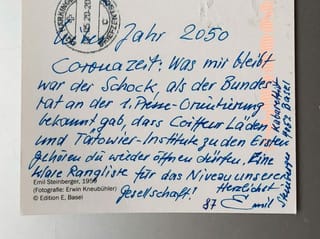 Jahr 2050
Coronazeit: Was mir bleibt
war der Schock, als der Bundes
rat an der 1. Presse-Orientierung
bekannt gab, dass Coiffeur Läden
und Tätowier-Institute zu den Ersten
gehören die wieder öffnen dürfen. Eine
klare Rangliste für das Niveau unserer
Gesellschaft!
Herzlichst
87 Emil
Steinberger
Kabarettist
Basel
Emil Steinberger, 195
(Fotografie: Erwin Kneubühler)
© Edition E, Basel